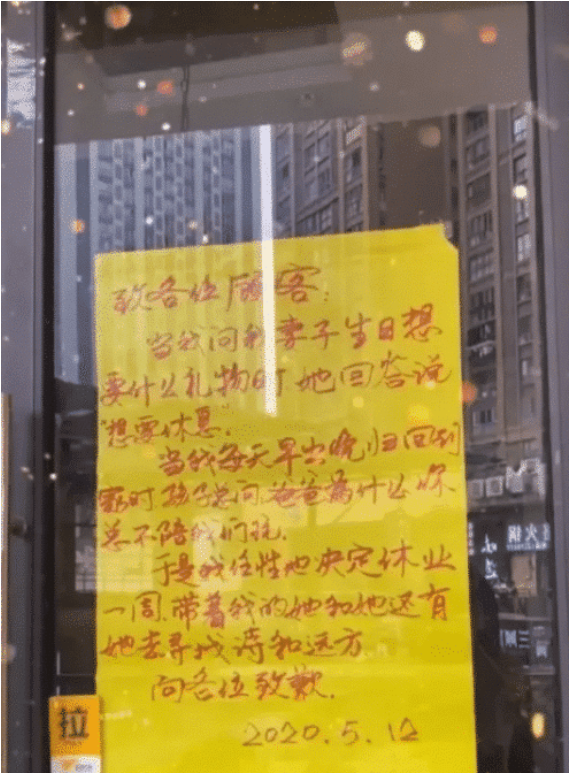 致各位顾客:
当我问我妻子生日想
要什么礼物时她回答说
"想要休息".
当我每天早出晚归回到
家时孩子总问,爸爸为什么你
总不陪我们玩.
于是我任性地决定休业
一周.带着我的她和她还有
她去寻找诗和远方.
向各位致歉.
2020.5.12
拉
火锅